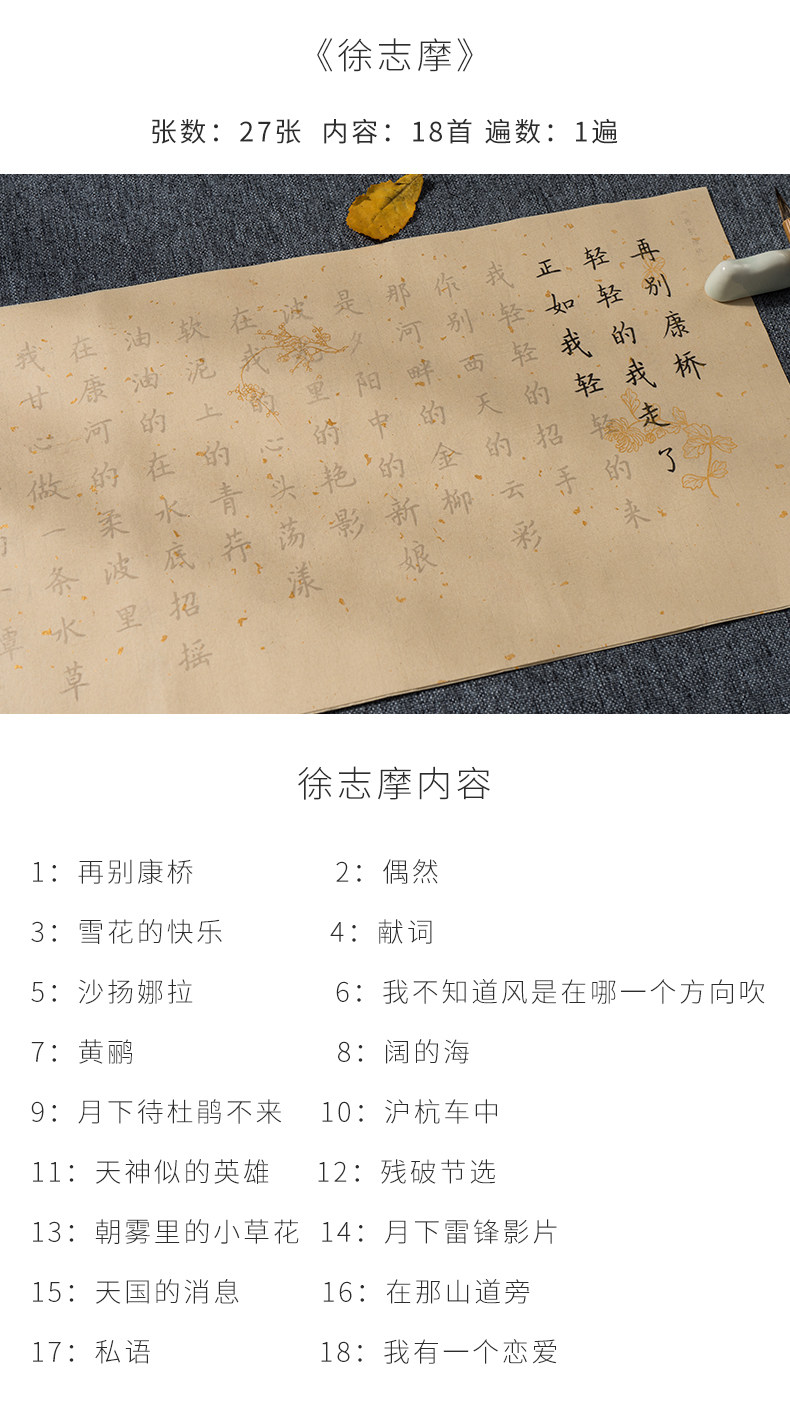 《徐志摩》
张数：27张 内容：18首 遍数：1遍
再别康桥
轻轻的我走了
正如我轻轻的来
我轻轻的招手
作别西天的云彩
那河畔的金柳
是夕阳中的新娘
波光里的艳影
在我的心头荡漾
软泥上的青荇
油油的在水底招摇
在康河的柔波里
我甘心做一条水草
徐志摩内容
1：再别康桥 2：偶然
3：雪花的快乐 4：献词
5：沙扬娜拉 6：我不知道风是在哪一个方向吹
7：黄鹂 8：阔的海
9：月下待杜鹃不来 10：沪杭车中
11：天神似的英雄 12：残破节选
13：朝雾里的小草花 14：月下雷锋影片
15：天国的消息 16：在那山道旁
17：私语 18：我有一个恋爱